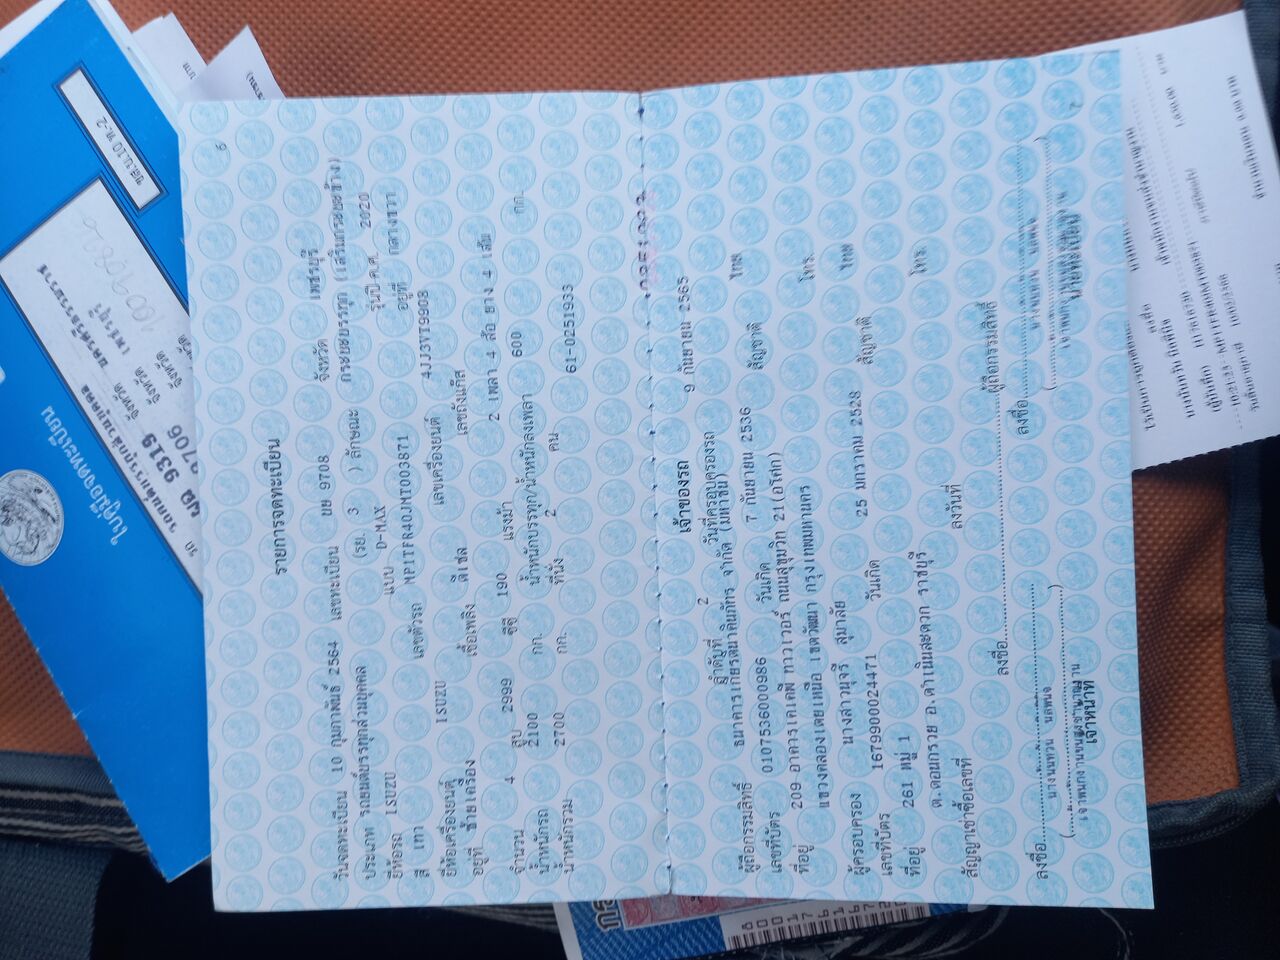 6
รายการจดทะเบียน
วันจดทะเบียน 10 กุมภาพันธ์ 2564 เลขทะเบียน ผย 9708 จังหวัด เพชรบุรี
ประเภท รถยนต์บรรทุกส่วนบุคคล (รย. 3 ) ลักษณะ กระบะบรรทุก (เสริมกระบะข้าง)
ยี่ห้อรถ ISUZU แบบ D-MAX รุ่นปี ค.ศ. 2020
สี เทา เลขตัวรถ MP1TFR40JMT003871 อยู่ที่ กลางขวา
ยี่ห้อเครื่องยนต์ ISUZU เลขเครื่องยนต์ 4JJ3VT9908
อยู่ที่ ซ้ายเครื่อง เชื้อเพลิง ดีเซล เลขถังแก๊ส
จำนวน 4 สูบ 2999 ซีซี 190 แรงม้า 2 เพลา 4 ล้อ ยาง 4 เส้น
น้ำหนักรถ 2100 กก. น้ำหนักบรรทุก/น้ำหนักลงเพลา 600 กก.
น้ำหนักรวม 2700 กก. ที่นั่ง 2 คน 61-0251933
เจ้าของรถ
ลำดับที่ 2 วันที่ครอบครองรถ 9 กันยายน 2565
ผู้ถือกรรมสิทธิ์ ธนาคารเกียรตินาคินภัทร จำกัด (มหาชน)
เลขที่บัตร 0107536000986 วันเกิด 7 กันยายน 2536 สัญชาติ ไทย
ที่อยู่ 209 อาคารเคเคพี ทาวเวอร์ ถนนสุขุมวิท 21(อโศก) โทร.
แขวงคลองเตยเหนือ เขตวัฒนา กรุงเทพมหานคร
ผู้ครอบครอง นางสาวนุจรี สุมาลัย
เลขที่บัตร 1679900024471 วันเกิด 25 มกราคม 2528 สัญชาติ ไทย
ที่อยู่ 261 หมู่ 1 โทร.
ต.ดอนกรวย อ.ดำเนินสะดวก ราชบุรี
สัญญาเช่าซื้อเลขที่ ลงวันที่
ลงชื่อ ผู้ถือกรรมสิทธิ์
ลงชื่อ ลงชื่อ
เจ้าหน้าที่ นายทะเบียน
7
ใบคู่มือจดทะเบียน
รถยนต์บรรทุกส่วนบุคคล
9319
9706
จังหวัด
จังหวัด เพชรบุรี
จังหวัด
1,650.00 บาท